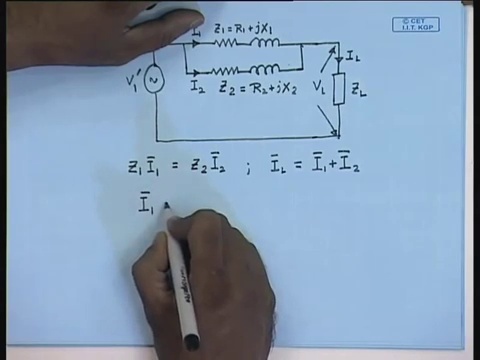 © CET
I.I.T. KGP
I₁ Z₁ = R₁ + jX₁
I_L
V₁'
I₂ Z₂ = R₂ + jX₂
V_L
Z_L
Z₁ Ī₁ = Z₂ Ī₂ ; Ī_L = Ī₁ + Ī₂
Ī₁